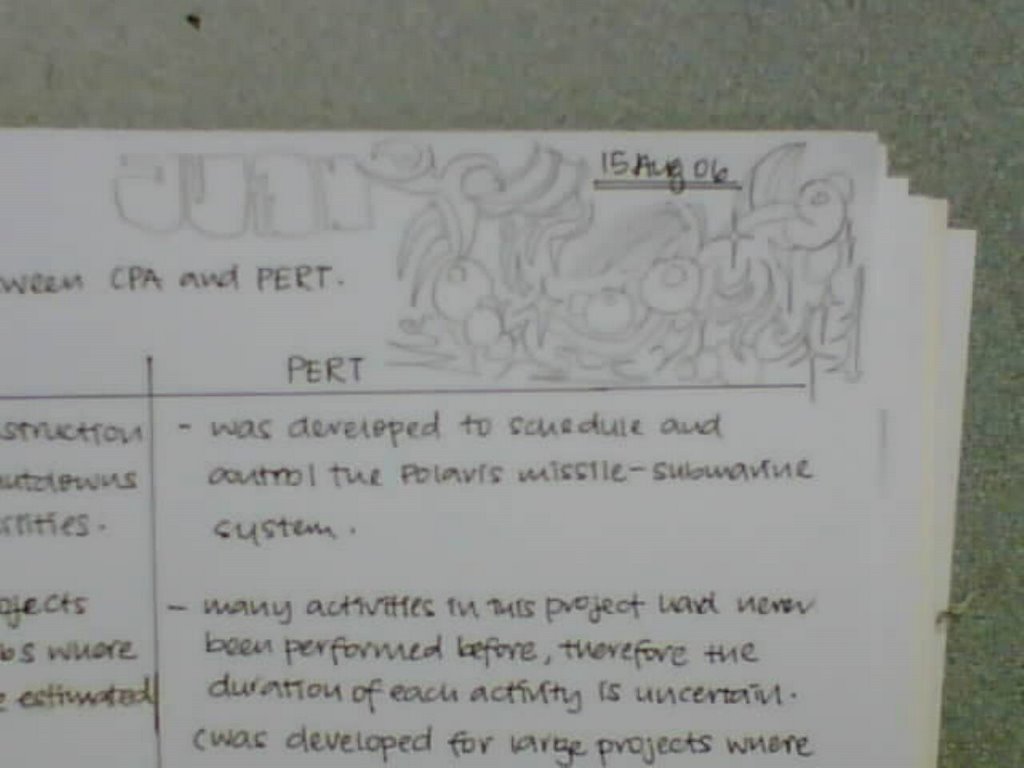 15 Aug 06
ween CPA and PERT.
PERT
struction
utdowns
ilities.
ojects
bs where
e estimated
- was developed to schedule and
control the Polaris missile-submarine
system.
- many activities in this project had never
been performed before, therefore the
duration of each activity is uncertain.
(was developed for large projects where